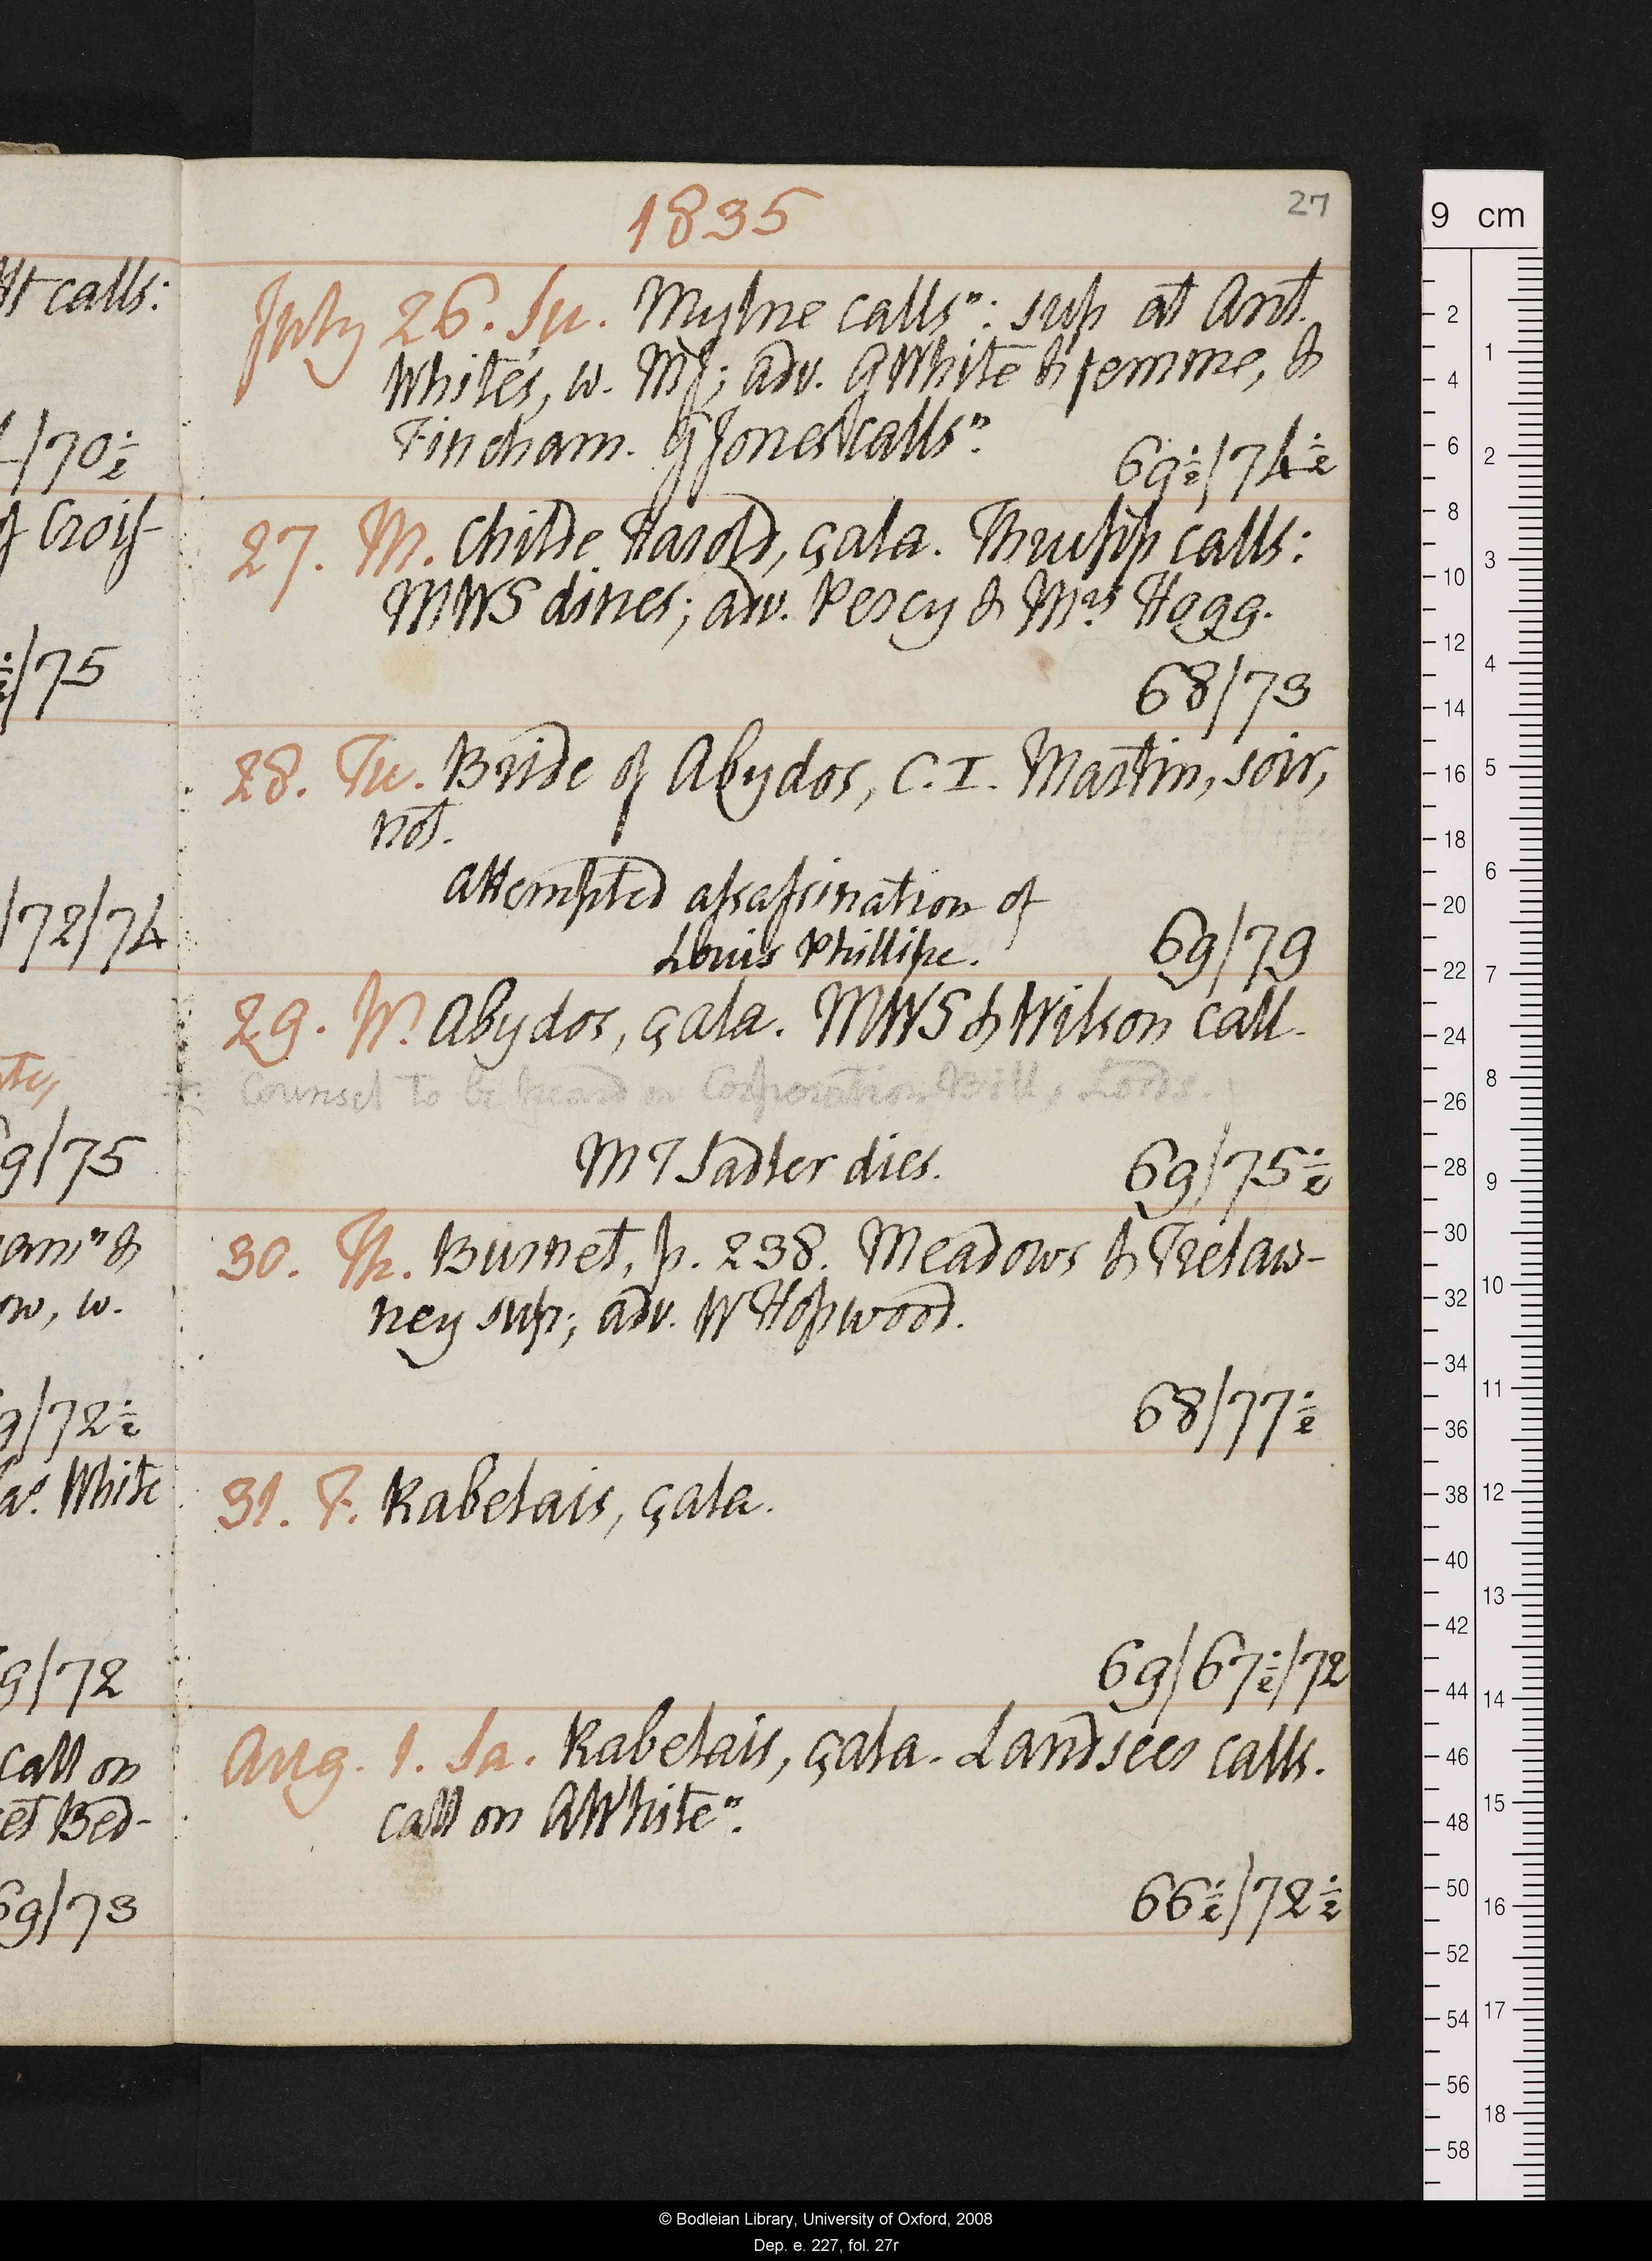 1835
27
July 26. Su. Mylne calls": sup at Ant.
White's, w. MJ; adv. AWhite & femme, &
Fincham. GJones calls".
69½/74½
27. M. Childe Harold, çala. Thrupp calls:
MWS dines; adv. Percy & Mrs Hogg.
68/73
28. Tu. Bride of Abydos, C. I. Martin, soir,
not.
Attempted assassination of
Louis Phillipe.
69/79
29. W. Abydos, çala. MWS & Wilson call.
Counsel to be heard on Corporation Bill, Lords.
MT Sadler dies.
69/75½
30. Th. Burnet, p. 238. Meadows & Trelaw-
ney sup; adv. W Hopwood.
68/77½
31. F. Rabelais, çala.
69/67½/72
Aug. 1. Sa. Rabelais, çala. Landseer calls.
call on AWhite".
66½/72½
calls:
/70½
of Crois-
/75
/72/74
9/75
am" &
ow, w.
9/72½
White
9/72
call on
et Bed-
69/73
9 cm
2
4
6
8
10
12
14
16
18
20
22
24
26
28
30
32
34
36
38
40
42
44
46
48
50
52
54
56
58
1
2
3
4
5
6
7
8
9
10
11
12
13
14
15
16
17
18
© Bodleian Library, University of Oxford, 2008
Dep. e. 227, fol. 27r